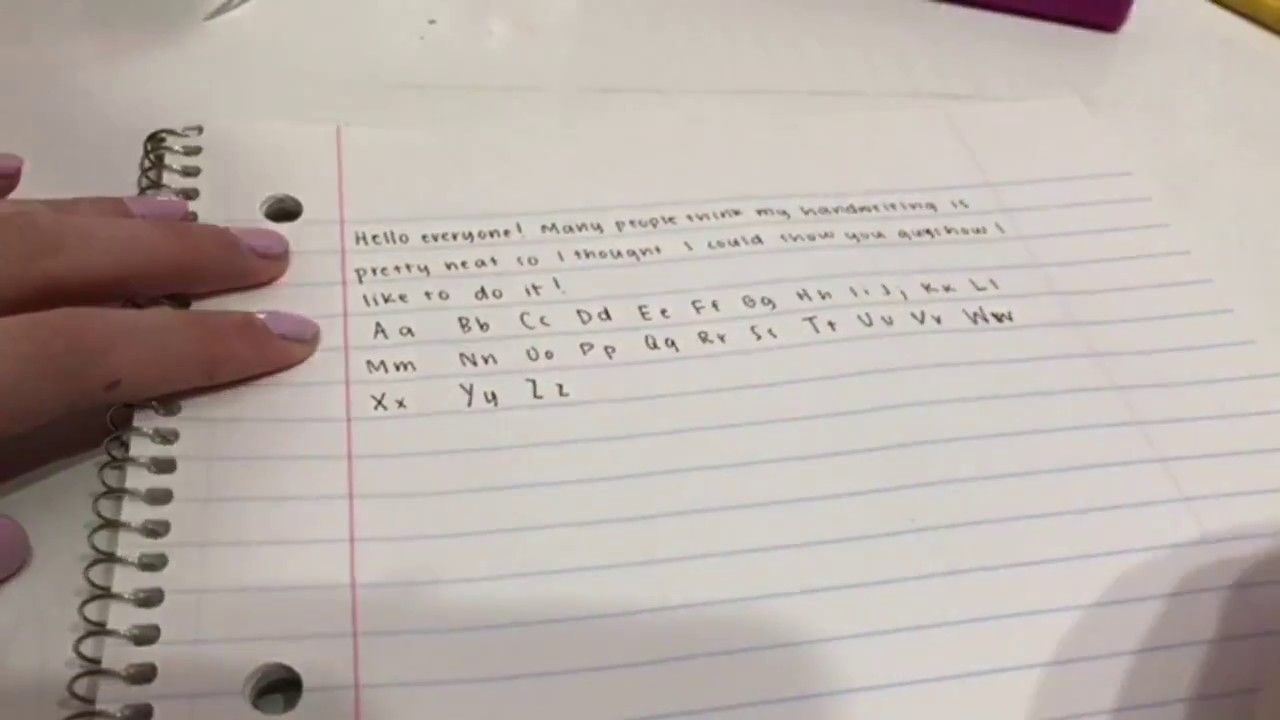 Hello everyone! Many people think my handwriting is
pretty neat so I thought I could show you guys how I
like to do it!
Aa Bb Cc Dd Ee Ff Gg Hh Ii Jj Kk Ll
Mm Nn Oo Pp Qq Rr Ss Tt Uu Vv Ww
Xx Yy Zz